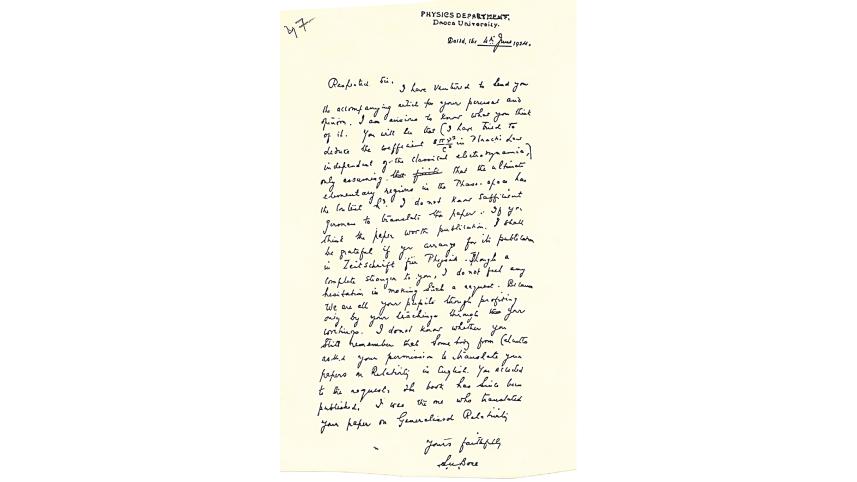 PHYSICS DEPARTMENT,
Dacca University.
Dated, the 4th June 1924.
Respected Sir, I have ventured to send you
the accompanying article for your perusal and
opinion. I am anxious to know what you think
of it. You will see that (I have tried to
deduce the coefficient 8πν²/c³ in Planck's Law
independent of the classical electrodynamics,)
only assuming that the ultimate
elementary regions in the Phase-space has
the content h³. I do not know sufficient
German to translate the paper. If you
think the paper worth publication, I shall
be grateful if you arrange for its publication
in Zeitschrift für Physik. Though a
complete stranger to you, I do not feel any
hesitation in making such a request. Because
we are all your pupils though profiting
only by your teachings through your
writings. I do not know whether you
still remember that somebody from Calcutta
asked your permission to translate your
papers on Relativity in English. You acceded
to the request. The book has since been
published. I was the one who translated
your paper on Generalised Relativity
Yours faithfully
S.N. Bose